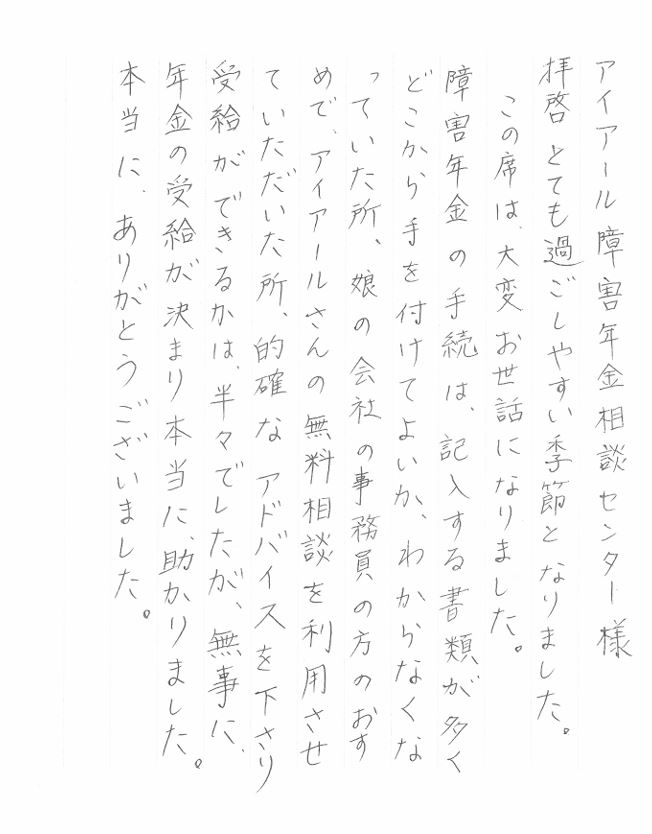 アイアール障害年金相談センター様
拝啓 とても過ごしやすい季節となりました。
この席は、大変お世話になりました。
障害年金の手続は、記入する書類が多く
どこから手を付けてよいか、わからなくな
っていた所、娘の会社の事務員の方のおす
めで、アイアールさんの無料相談を利用させ
ていただいた所、的確なアドバイスを下さり
受給ができるかは、半々でしたが、無事に、
年金の受給が決まり本当に、助かりました。
本当に、ありがとうございました。